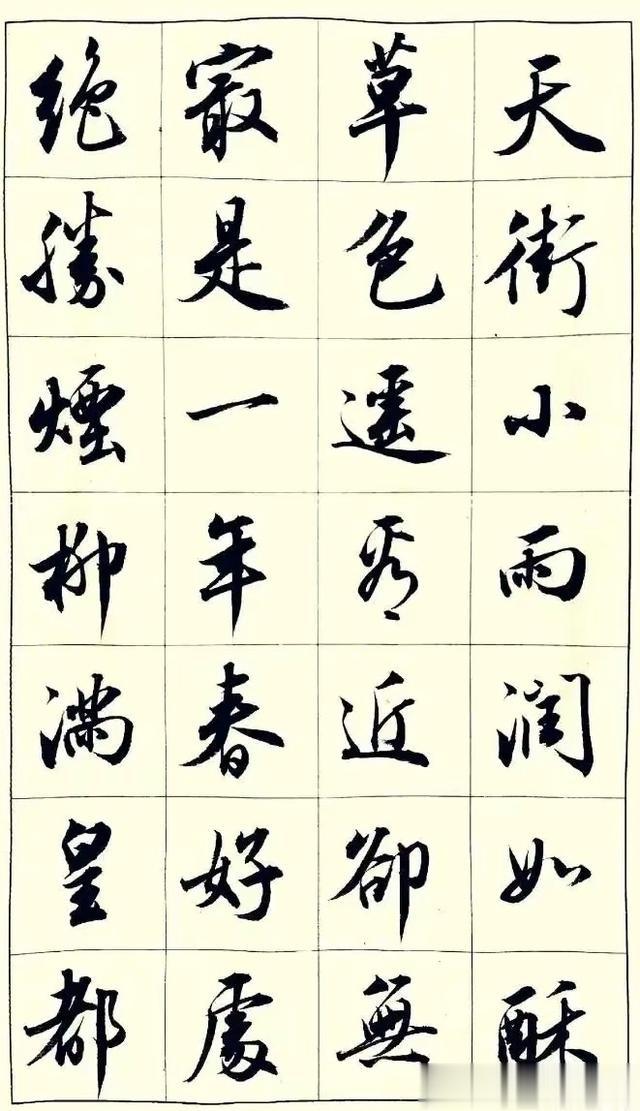 天街小雨潤如酥
草色遥看近卻無
最是一年春好處
絶勝煙柳滿皇都